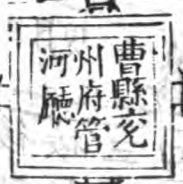 曹縣兖
州府管
河廳